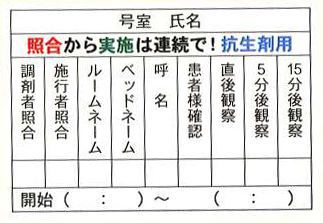 号室 氏名
照合から実施は連続で!抗生剤用
調剤者照合
施行者照合
ルームネーム
ベッドネーム
呼名
患者様確認
直後観察
5分後観察
15分後観察
開始( : )～( : )